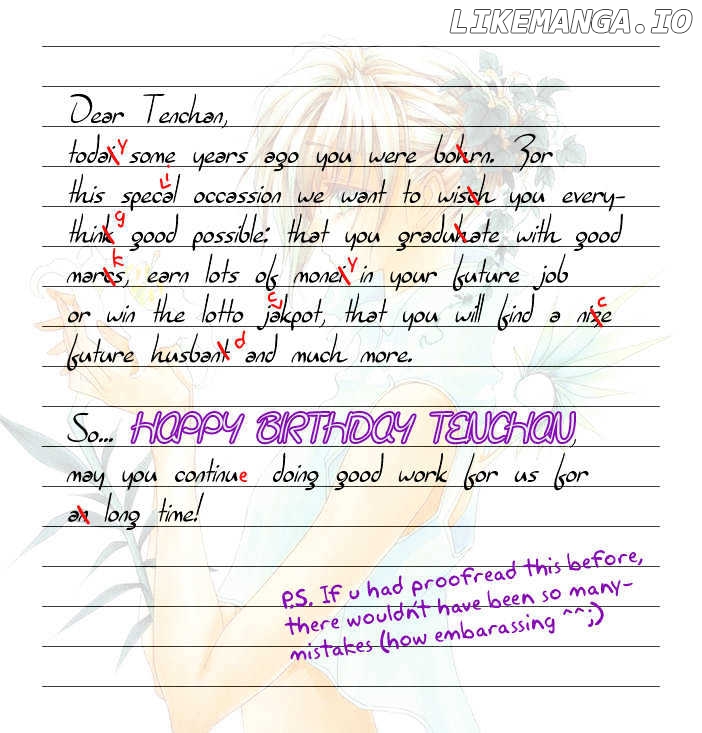 LIKEMANGA.IO
Dear Tenchan,
todaiy some years ago you were bohrn. For
this special occassion we want to wisch you every-
thinkg good possible: that you graduhate with good
marcks, earn lots of moneiy in your future job
or win the lotto jackpot, that you will find a nizce
future husbantd and much more.
So... HAPPY BIRTHDAY TENCHAN,
may you continue doing good work for us for
an long time!
P.S. If u had proofread this before,
there wouldn't have been so many-
mistakes (how embarassing ^^;)